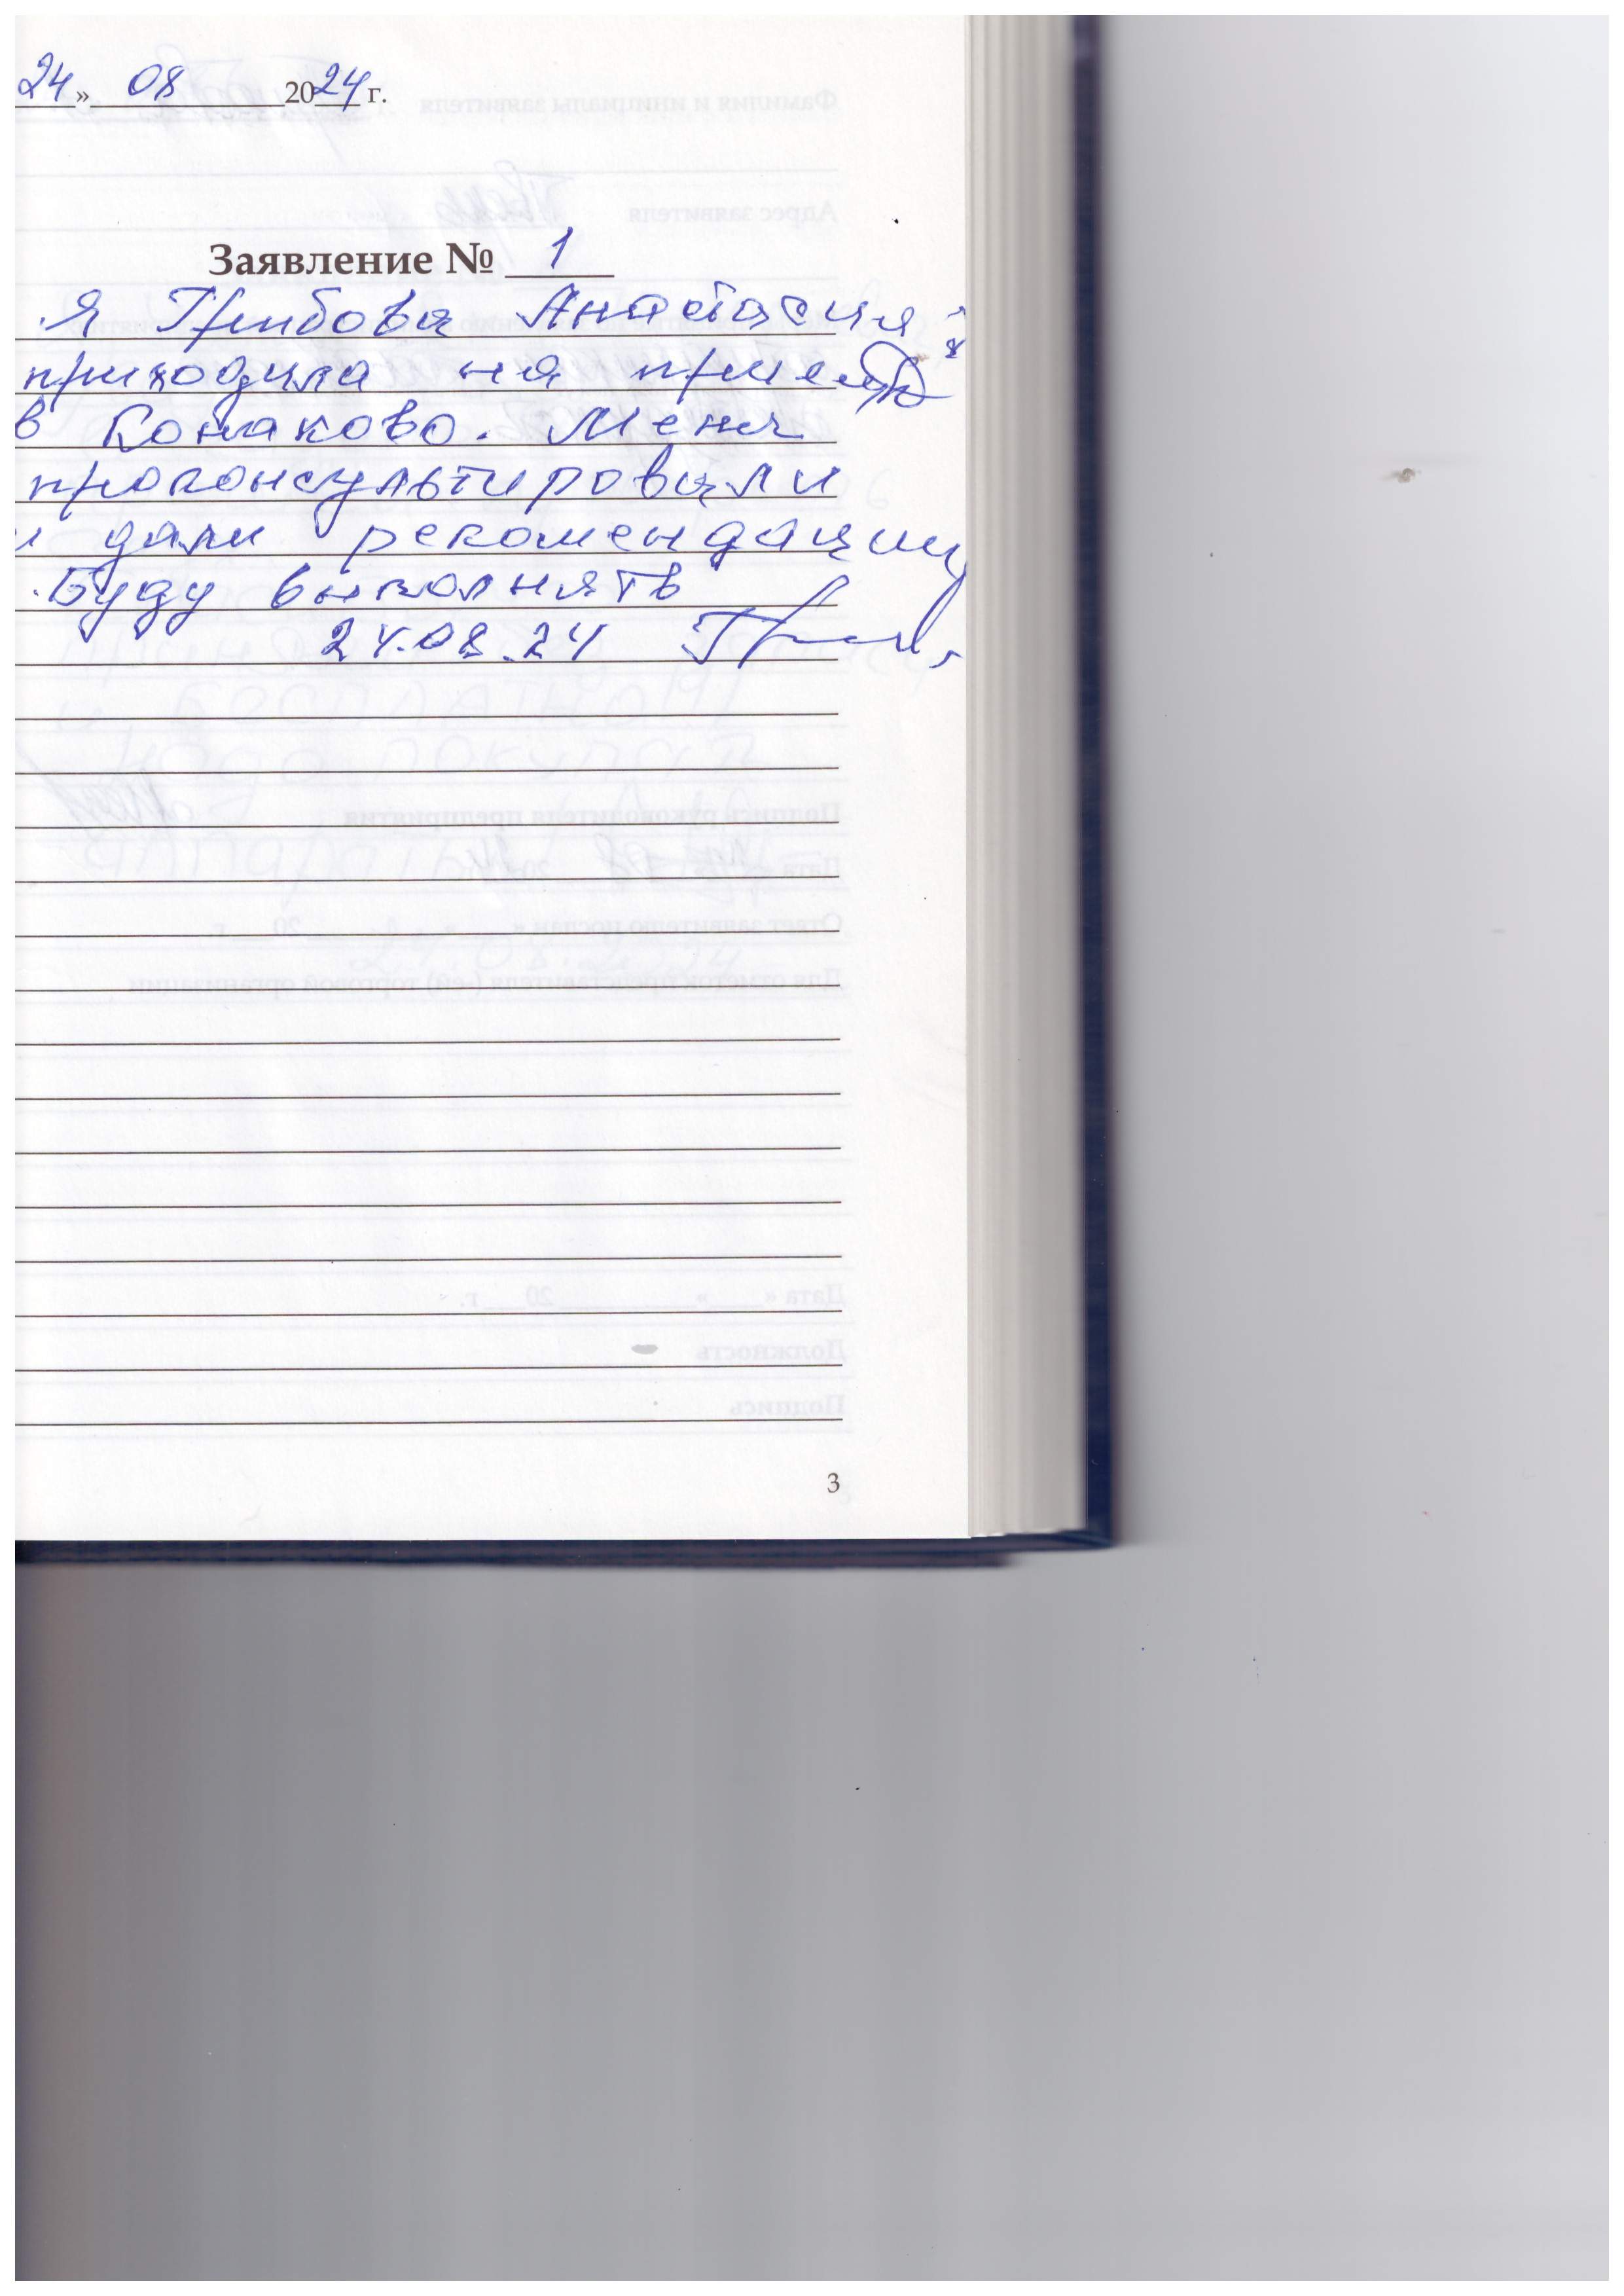 24» 08 2024 г.
Заявление № 1
Я Грибова Анастасия
приходила на прием
в Конаково. Меня
проконсультировали
и дали рекомендации
. Буду выполнять
24.08.24
3